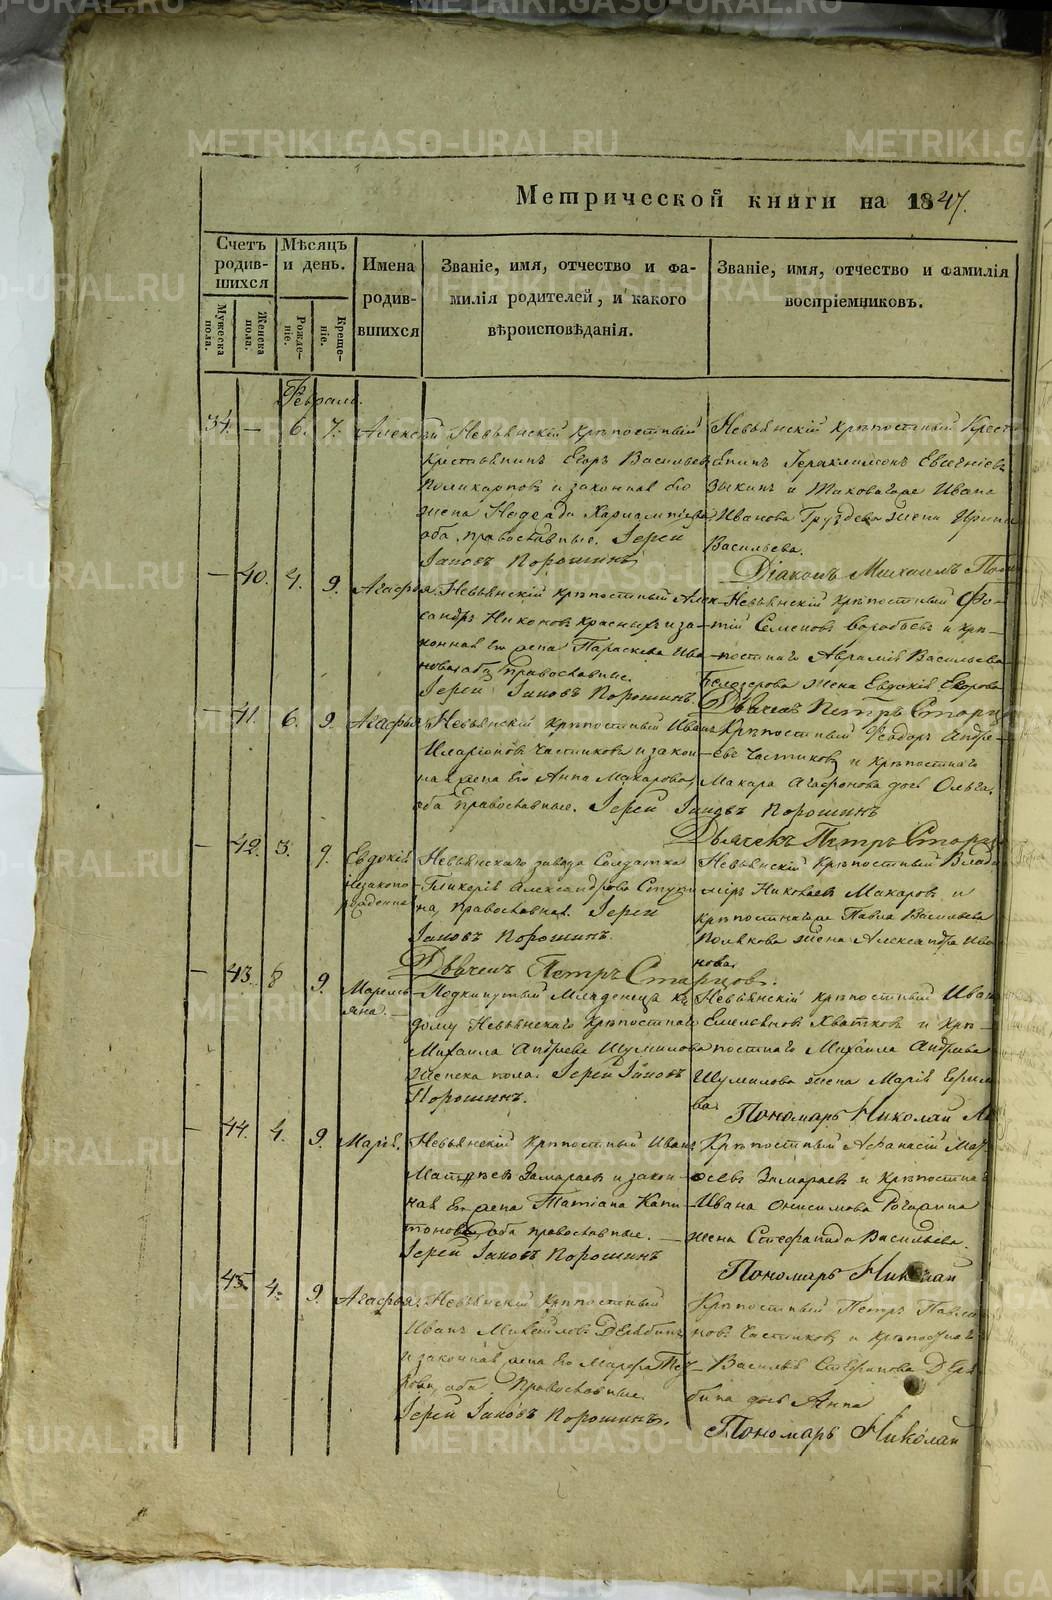 Метрической книги на 1847.
Счетъ родившихся
Мѣсяцъ и день.
Имена родившихся
Званіе, имя, отчество и фамилія родителей, и какого вѣроисповѣданія.
Званіе, имя, отчество и фамилія воспріемниковъ.
Мужеска пола.
Женска пола.
Рожденіе.
Крещеніе.
Февраль.
34. — 6. 7. Алексѣй
Невьянскій крѣпостный
крестьянинъ Егоръ Васильевъ
Поликарповъ и законная его
жена Надежда Харлампіева
оба православные. Іерей
Іаковъ Порошинъ
Невьянскій крѣпостный Крест
Евгеніевъ
Зыкинъ и Ивана
Иванова Груздева жена Ирина
Васильева.
Діаконъ Михаилъ
— 40. 4. 9. Агафья.
Невьянскій крѣпостный Алек-
сандръ Никоновъ Красныхъ и за-
конная его жена Параскева Ива-
нова оба православные.
Іерей Іаковъ Порошинъ.
Невьянскій крѣпостный Фо-
тій Семеновъ Воробьевъ и крѣ-
постнаго Васильева
Белозерова жена Евдокія Егорова
Дьячекъ Петръ Старцо
— 41. 6. 9. Агафья
Невьянскій крѣпостный Иванъ
Иларіоновъ Частиковъ и закон-
ная жена его Анна Макарова,
оба православные. Іерей Іаковъ Порошинъ
Крѣпостный Ѳеодоръ Андре-
евъ Частиковъ и крѣпостнаго
Макара Агафонова дочь Ольга.
Дьячекъ Петръ Старцо
— 42. 3. 9. Евдокія
незаконо
рожденная
Невьянскаго завода Солдатка
Гликерія Александрова
на, православная. Іерей
Іаковъ Порошинъ.
Дьячекъ Петръ Старцовъ.
Невьянскій крѣпостный Влади
міръ Николаевъ Макаровъ и
Павла Васильева
Полякова жена Александра Ива
нова
— 43. 8 9. Маремь
яна.
Подкинутый Младенецъ къ
дому Невьянскаго крѣпостнаго
Михаила Андреева Шумилова
женска пола. Іерей Іаковъ
Порошинъ.
Невьянскій крѣпостный Иванъ
Емельяновъ Хватковъ и крѣ-
постнаго Михаила Андреева
Шумилова жена Марія Ефимо
ва.
Пономарь Николай
— 44. 4. 9. Марія.
Невьянскій крѣпостный Иванъ
Матвѣевъ Замараевъ и закон-
ная его жена Татіана Капи-
тонова, оба православные. —
Іерей Іаковъ Порошинъ
Крѣпостный Афанасій Мат
ѳеевъ Замараевъ и крѣпостнаг
Ивана Онисимова
жена Стефанида Васильева.
Пономарь Николай
45. 4. 9. Агафья
Невьянскій крѣпостный
Иванъ Михайловъ Дерябинъ
и законная жена его Марфа
оба Православные
Іерей Іаковъ Порошинъ.
Крѣпостный Петръ Павло
новъ Частиковъ и крѣпостнаг
Василья Стефанова Деря
бина дочь Анна
Пономарь Николай
METRIKI.GASO-URAL.RU